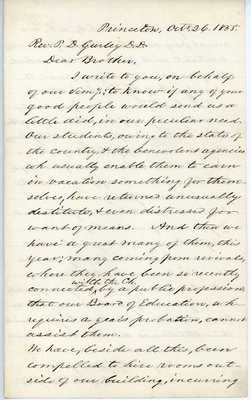 Princeton, Oct. 26. 1855.
Rev. P. D. Gurley D.D.
Dear Brother,
I write to you, on behalf
of our Semy; to know if any of your
good people would send us a
little aid, in our peculiar need.
Our students, owing to the state of
the country, & the benevolent agencies
wh. usually enable them to earn
in vacation something for them
selves, have returned unusually
destitute, & even distressed for
want of means. And then we
have a great many of them, this
year; many coming from revivals,
where they have been so recently
with the Ch.
connected, by a public profession,
that our Board of Education, wh.
requires a year's probation, cannot
assist them.
We have, beside all this, been
compelled to hire rooms out-
side of our building, incurring